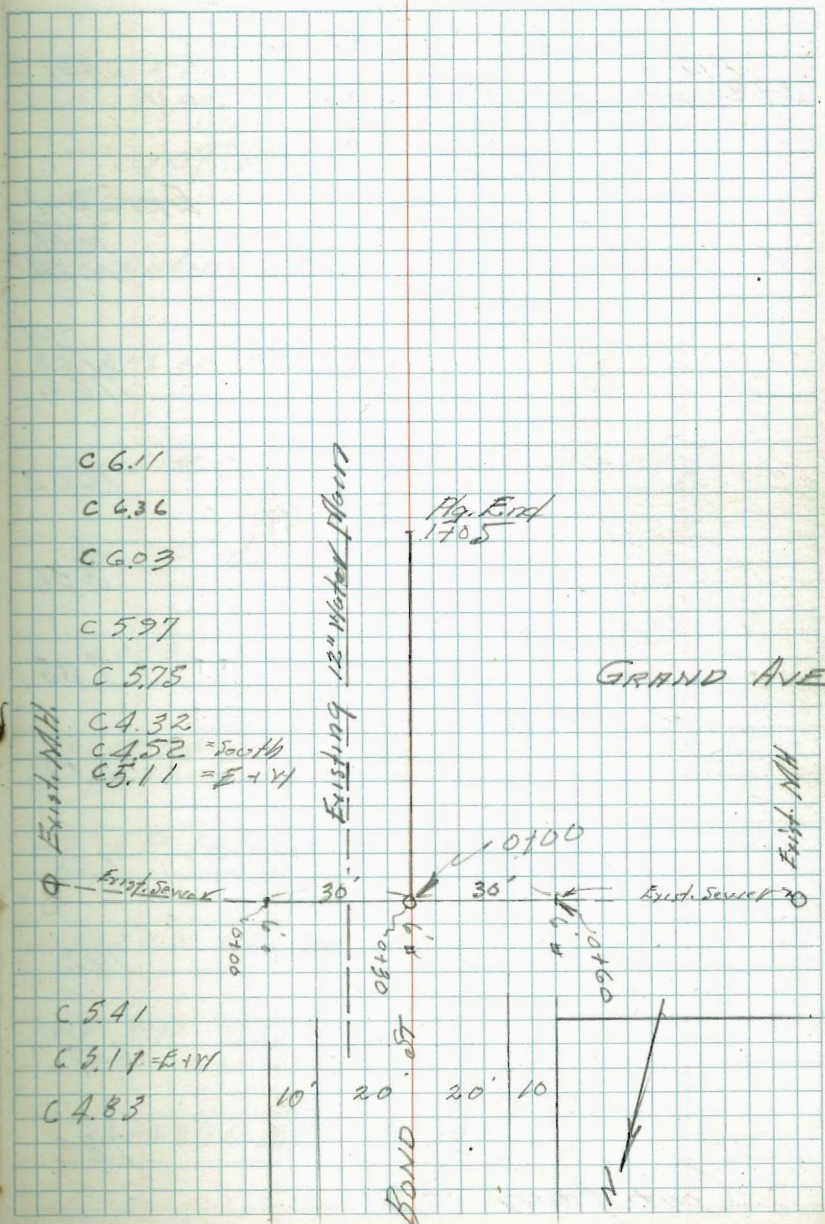 C 6.11
C 6.36
C 6.03
C 5.97
C 5.75
C 4.32
C 4.52 = South
C 5.11 = E + W
Existing 12" Water Main
Plg. End
1+05
GRAND AVE
Exist. M.H.
Exist. MH
0+00
Exist. Sewer
30'
30'
Exist. Sewer
0+00
0+30
0+60
C 5.41
C 5.11 = E+W
C 4.83
10'
20
20'
10
BOND ST
N